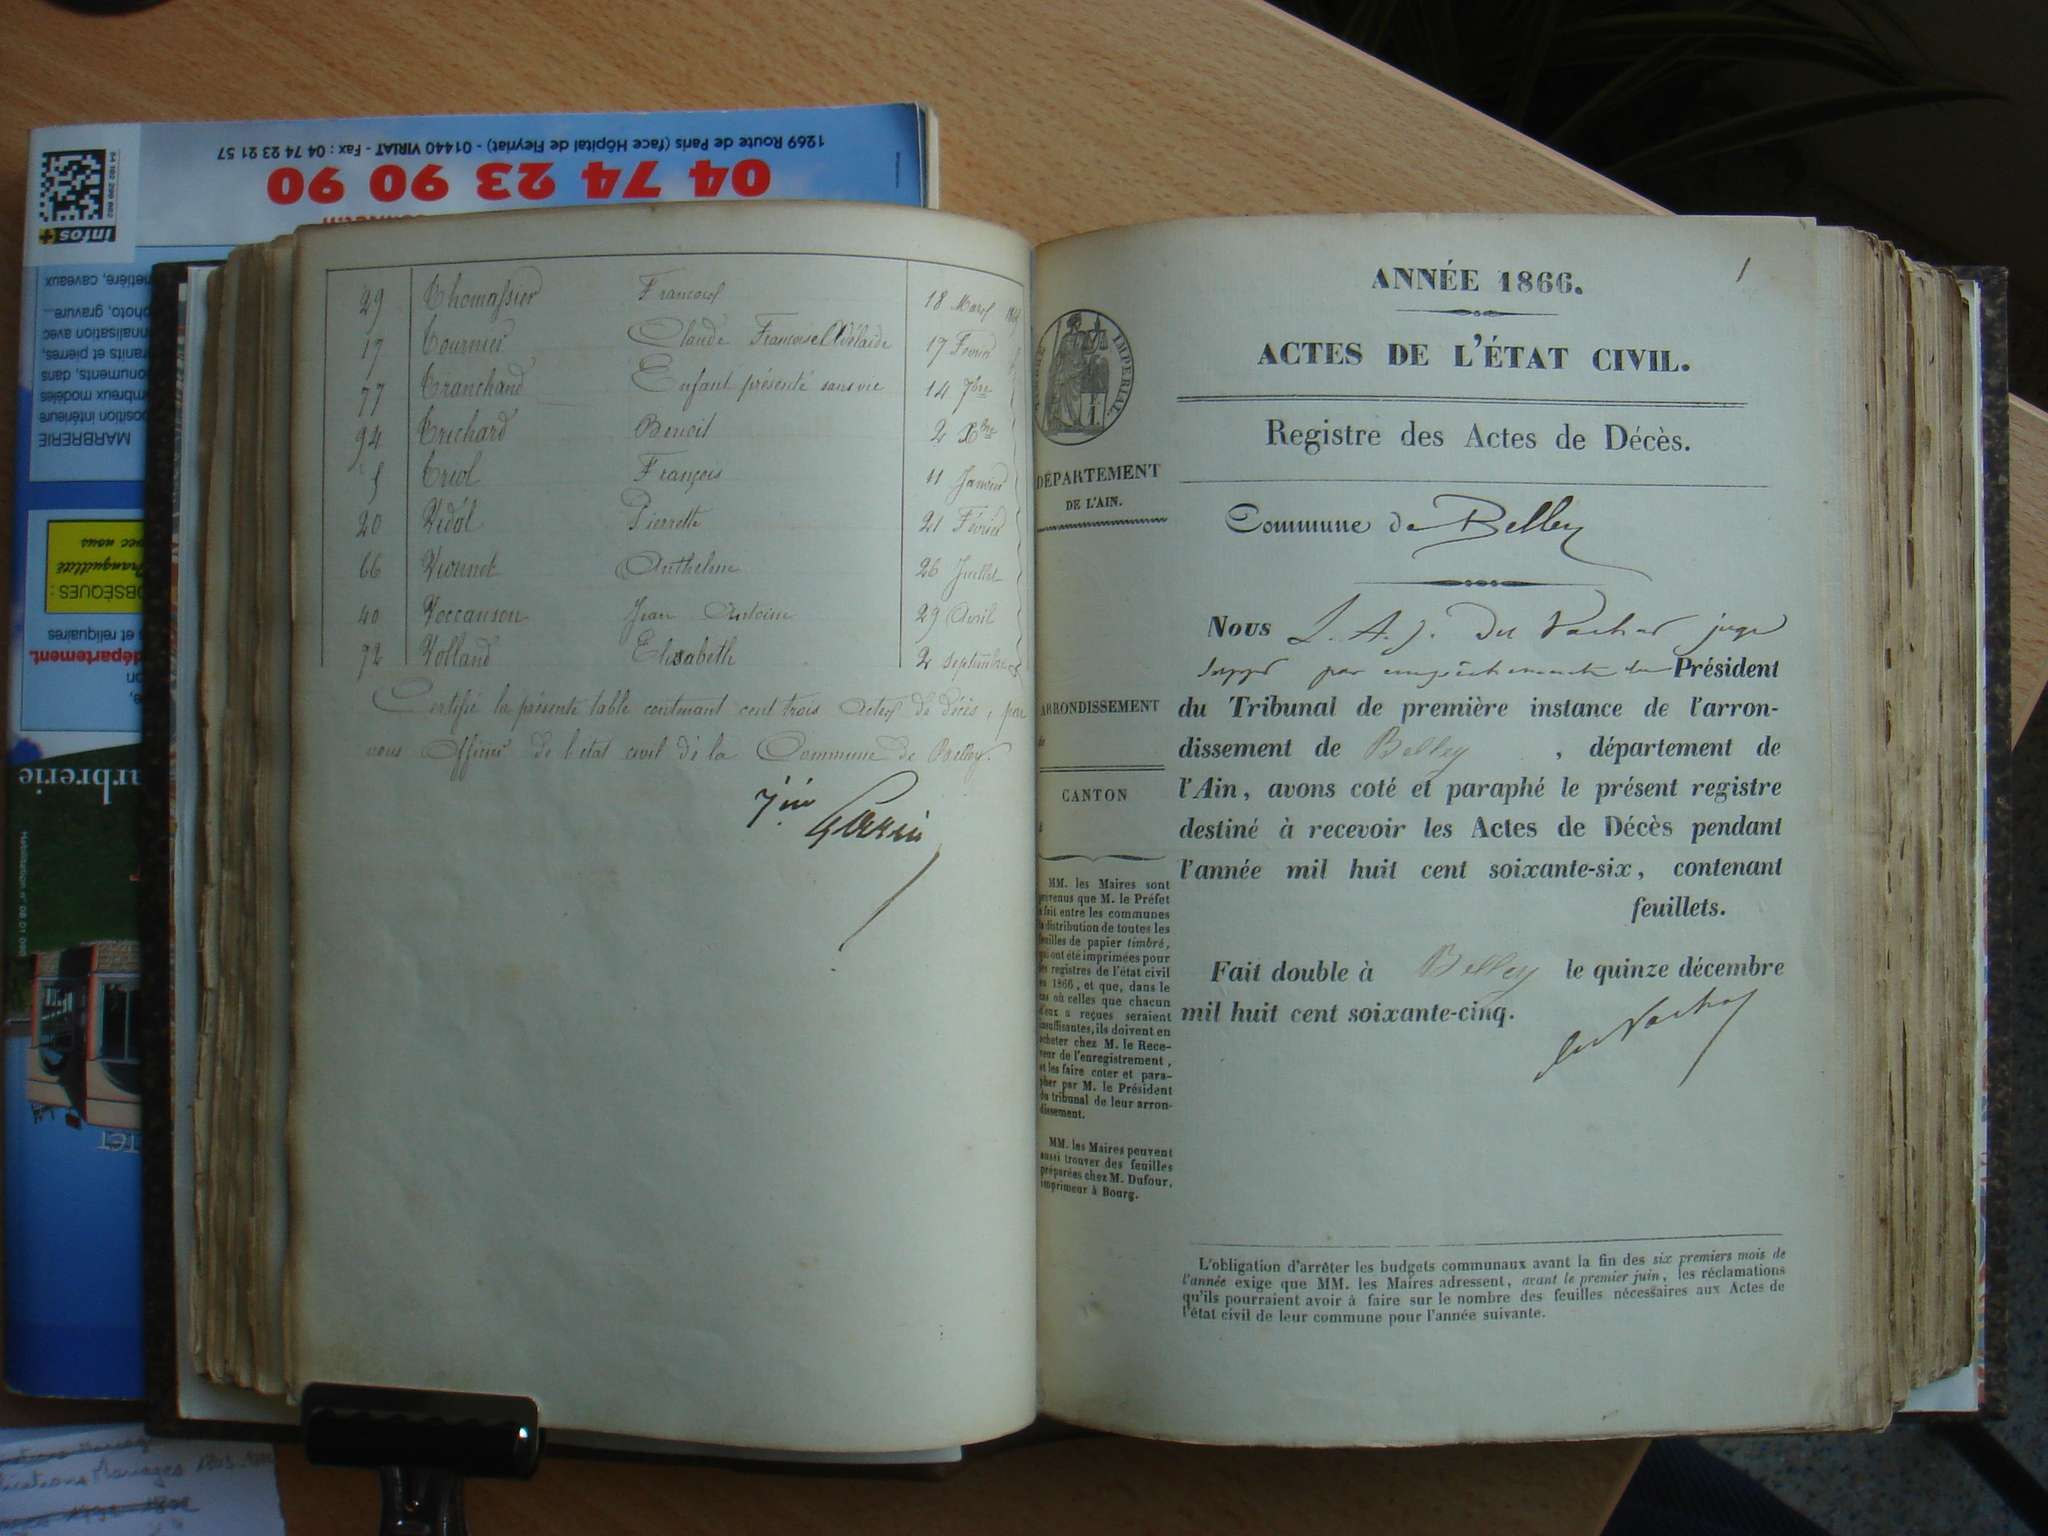 1269 Route de Paris (face Hôpital de Fleyriat) - 01440 VIRIAT - Fax : 04 74 23 21 57
04 74 23 90 90
infos+
metière, caveaux
photo, gravure
MARBRERIE
OBSÈQUES :
Tranquillité
avec nous
s et reliquaires
département.
arbrerie
29 Thomassier François 18 Mars
17 Tournier Claude Françoise Adélaïde 17 Février
77 Tranchand Enfant présenté sans vie 14 7bre
94 Trichard Benoit 2 Xbre
5 Triol François 11 Janvier
20 Vidal Pierrette 21 Février
66 Vionnet Anthelme 26 Juillet
40 Voccanson Jean Antoine 29 Avril
72 Volland Elisabeth 2 septembre
Certifié la présente table contenant cent trois Actes de décès, par
nous Officier de l'état civil de la Commune de Belley.
1
ANNÉE 1866.
ACTES DE L'ÉTAT CIVIL.
Registre des Actes de Décès.
IMPERIAL.
DÉPARTEMENT
DE L'AIN.
Commune de Belley
Nous L. A. J. Du Vachat juge
suppt par empêchement du Président
du Tribunal de première instance de l'arron-
dissement de Belley , département de
l'Ain, avons coté et paraphé le présent registre
destiné à recevoir les Actes de Décès pendant
l'année mil huit cent soixante-six, contenant
feuillets.
Fait double à Belley le quinze décembre
mil huit cent soixante-cinq.
du Vachat
ARRONDISSEMENT
de
CANTON
MM. les Maires sont
prévenus que M. le Préfet
a fait entre les communes
la distribution de toutes les
feuilles de papier timbré,
qui ont été imprimées pour
les registres de l'état civil
en 1866, et que, dans le
cas où celles que chacun
d'eux a reçues seraient
insuffisantes, ils doivent en
acheter chez M. le Rece-
veur de l'enregistrement,
et les faire coter et para-
pher par M. le Président
du tribunal de leur arron-
dissement.
MM. les Maires peuvent
aussi trouver des feuilles
préparées chez M. Dufour,
imprimeur à Bourg.
L'obligation d'arrêter les budgets communaux avant la fin des six premiers mois de
l'année exige que MM. les Maires adressent, avant le premier juin, les réclamations
qu'ils pourraient avoir à faire sur le nombre des feuilles nécessaires aux Actes de
l'état civil de leur commune pour l'année suivante.